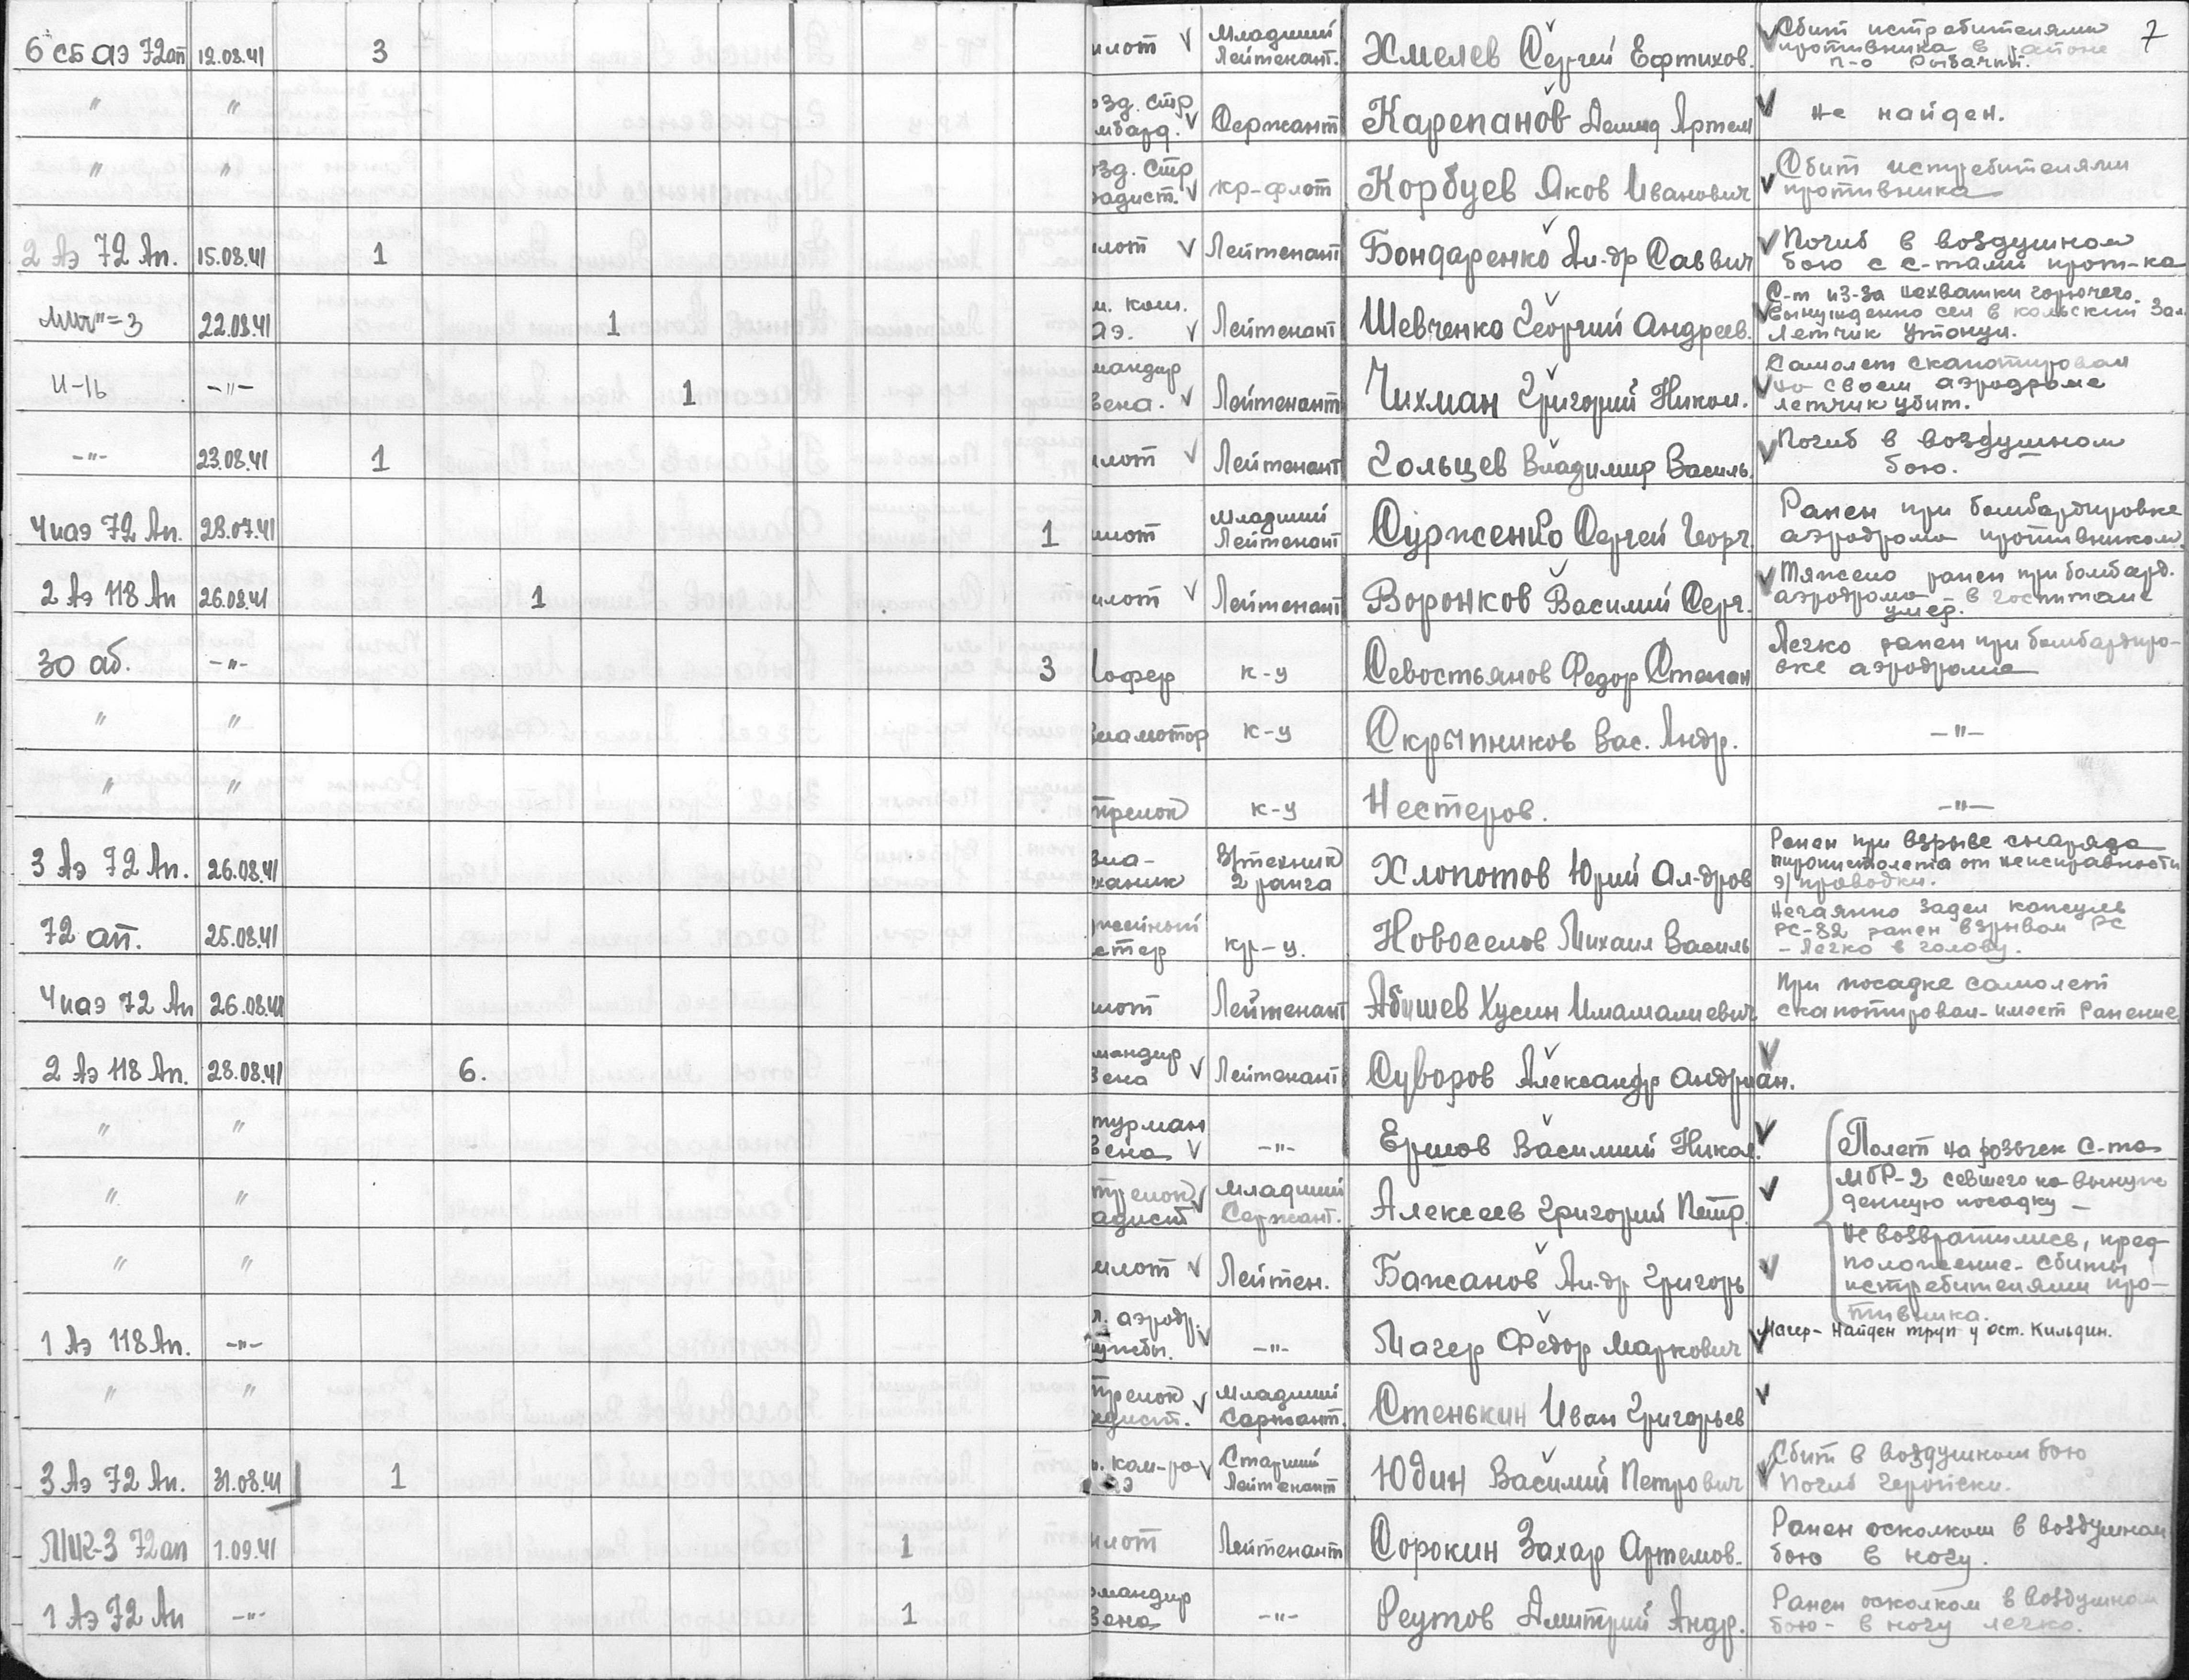 7
6 СБ АЭ 72ап 12.08.41 3 илот Младший Лейтенант. Хмелев Сергей Ефтихов. Сбит истребителями
противника в районе
п-о Рыбачий.
" " озд. стр мбард. Сержант Карепанов Демид Артем не найден.
" " озд. стр радист. кр-флот Корбуев Яков Иванович Сбит истребителями
противника
2 Аэ 72 Ап. 15.08.41 1 илот Лейтенант Бондаренко Ал-др Саввич Погиб в воздушном
бою с с-тами прот-ка
22.08.41 1 м. ком. Аэ. Лейтенант Шевченко Георгий Андреев. С-т из-за нехватки горючего.
вынужденно сел в Кольский Зал.
Летчик утонул.
И-16 -"- 1 мандир вена. Лейтенант Чихман Григорий Никол. Самолет скапотировал
на своем аэродроме
летчик убит.
-"- 23.08.41 1 илот Лейтенант Гольцев Владимир Василь. Погиб в воздушном
бою.
4 иаэ 72 Ап. 23.07.41 1 илот младший Лейтенант Сурженко Сергей Георг. Ранен при бомбардировке
аэродрома противником
2 Аэ 118 Ап 26.08.41 1 илот Лейтенант Воронков Василий Серг. Тяжело ранен при бомбард.
аэродрома - в госпитале
умер.
30 аб. -"- 3 офер к-у Севостьянов Федор Степан Легко ранен при бомбардиро-
вке аэродрома
" " иамотор к-у Скрыпников Вас. Андр. -"-
" " трелок к-у Нестеров. -"-
3 Аэ 72 Ап. 26.08.41 виа- ханик В/техник 2 ранга Хлопотов Юрий Ал-дров Ранен при взрыве снаряда
пиропистолета от неисправности
э/проводки.
72 ап. 25.08.41 жейный стер кр-у. Новоселов Михаил Василь Нечаянно задел капсуль
РС-82 ранен взрывом РС
- легко в голову.
4 иаэ 72 Ап 26.08.41 илот Лейтенант Абишев Хусин Имамалиевич При посадке самолет
скапотировал - имеет Ранение
2 Аэ 118 Ап. 28.08.41 6. мандир вена Лейтенант Суворов Александр Андриан.
" " турман вена -"- Ершов Василий Никол. Полет на розыск с-та
" " трелок адист Младший Сержант. Алексеев Григорий Петр. МБР-2 севшего на вынуж
денную посадку -
" " илот Лейтен. Бажанов Ал-др Григорь Не возвратились, пред-
положение - сбиты
истребителями про-
тивника.
1 Аэ 118 Ап. -"- аэродр. ужбы. -"- Магер Федор Маркович Магер - Найден труп у ост. Кильдин.
" " трелок адист. Младший Сержант. Стенькин Иван Григорьев
3 Аэ 72 Ап. 31.08.41 1 ком-ра АЭ Старший Лейтенант Юдин Василий Петрович Сбит в воздушном бою
Погиб геройски.
МИГ-3 72ап 1.09.41 1 илот Лейтенант Сорокин Захар Артемов. Ранен осколком в воздушном
бою в ногу.
1 Аэ 72 Ап -"- 1 мандир вена -"- Реутов Дмитрий Андр. Ранен осколком в воздушном
бою - в ногу легко.